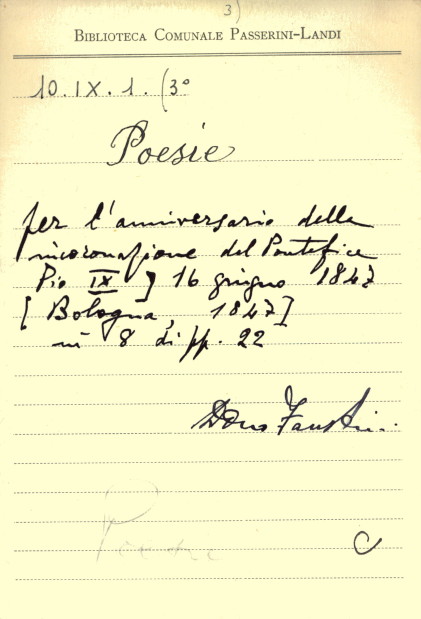 3)
BIBLIOTECA COMUNALE PASSERINI-LANDI
10.IX.1.(3°
Poesie
per l'anniversario della
incoronazione del Pontefice
Pio IX] 16 giugno 1847
[Bologna, 1847]
in 8 di pp. 22
Dono Faustini
C